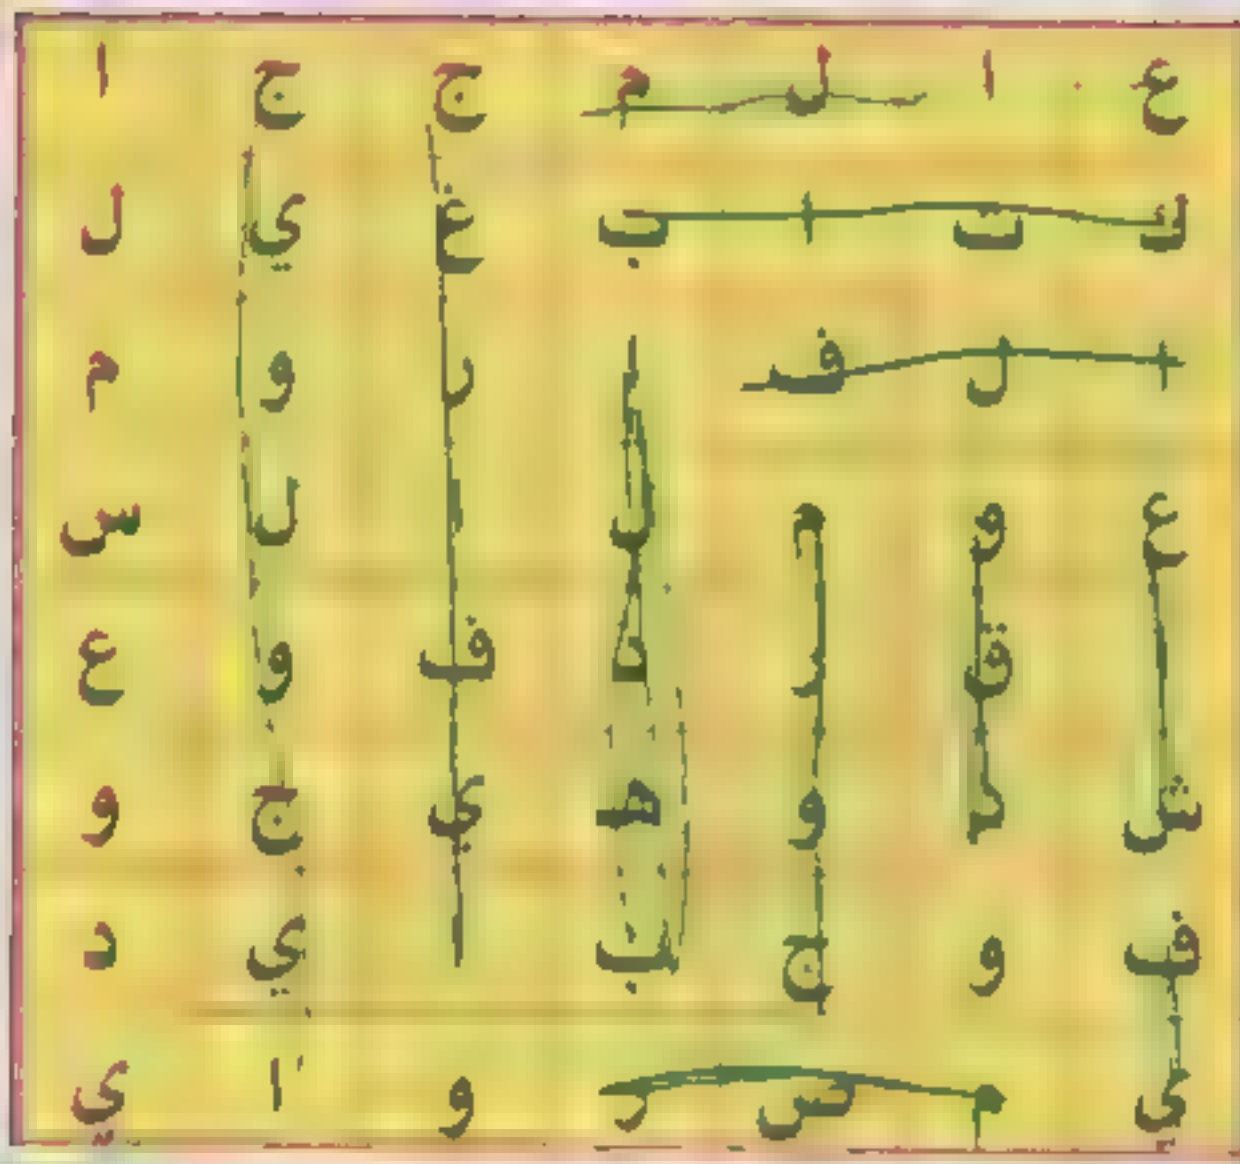 ع ا ل م ج ج ا
ك ت ا ب غ ي ل
ا ل ف ا ر و م
ع و م ل ا ل س
ا ق ر ذ ف و ع
ش د و ه ي ج و
ف و ج ب ا ي د
ي م ص ر و ا ي